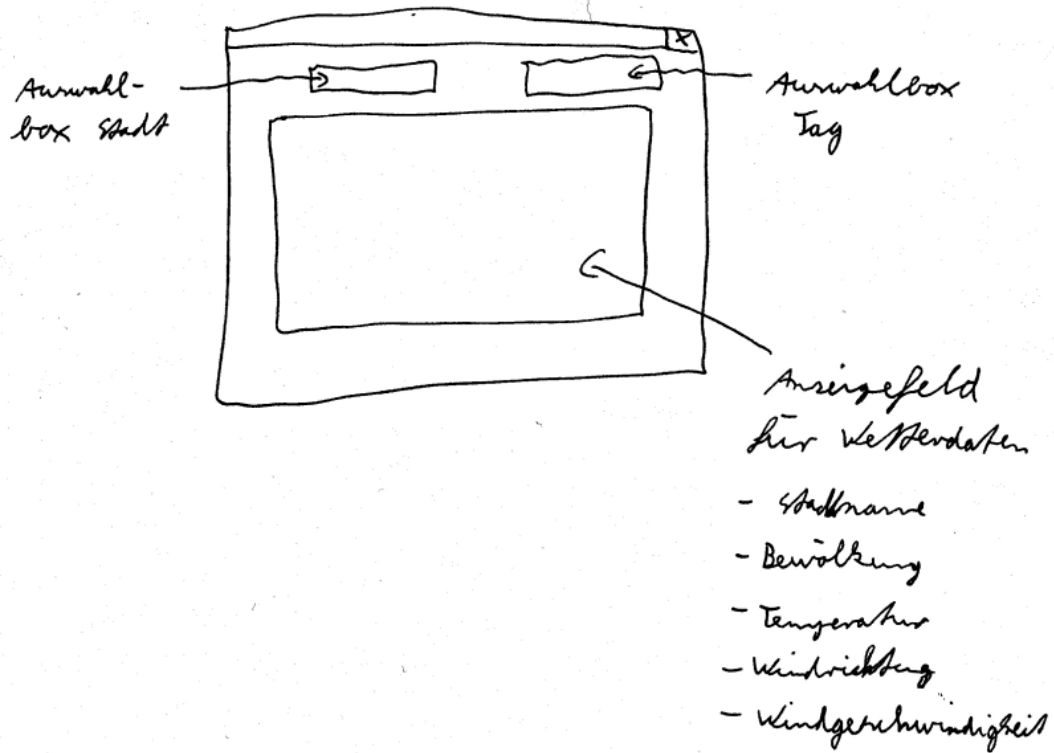 Auswahl-
box Stadt
x
Auswahlbox
Tag
Anzeigefeld
für Wetterdaten
- Stadtname
- Bewölkung
- Temperatur
- Windrichtung
- Windgeschwindigkeit